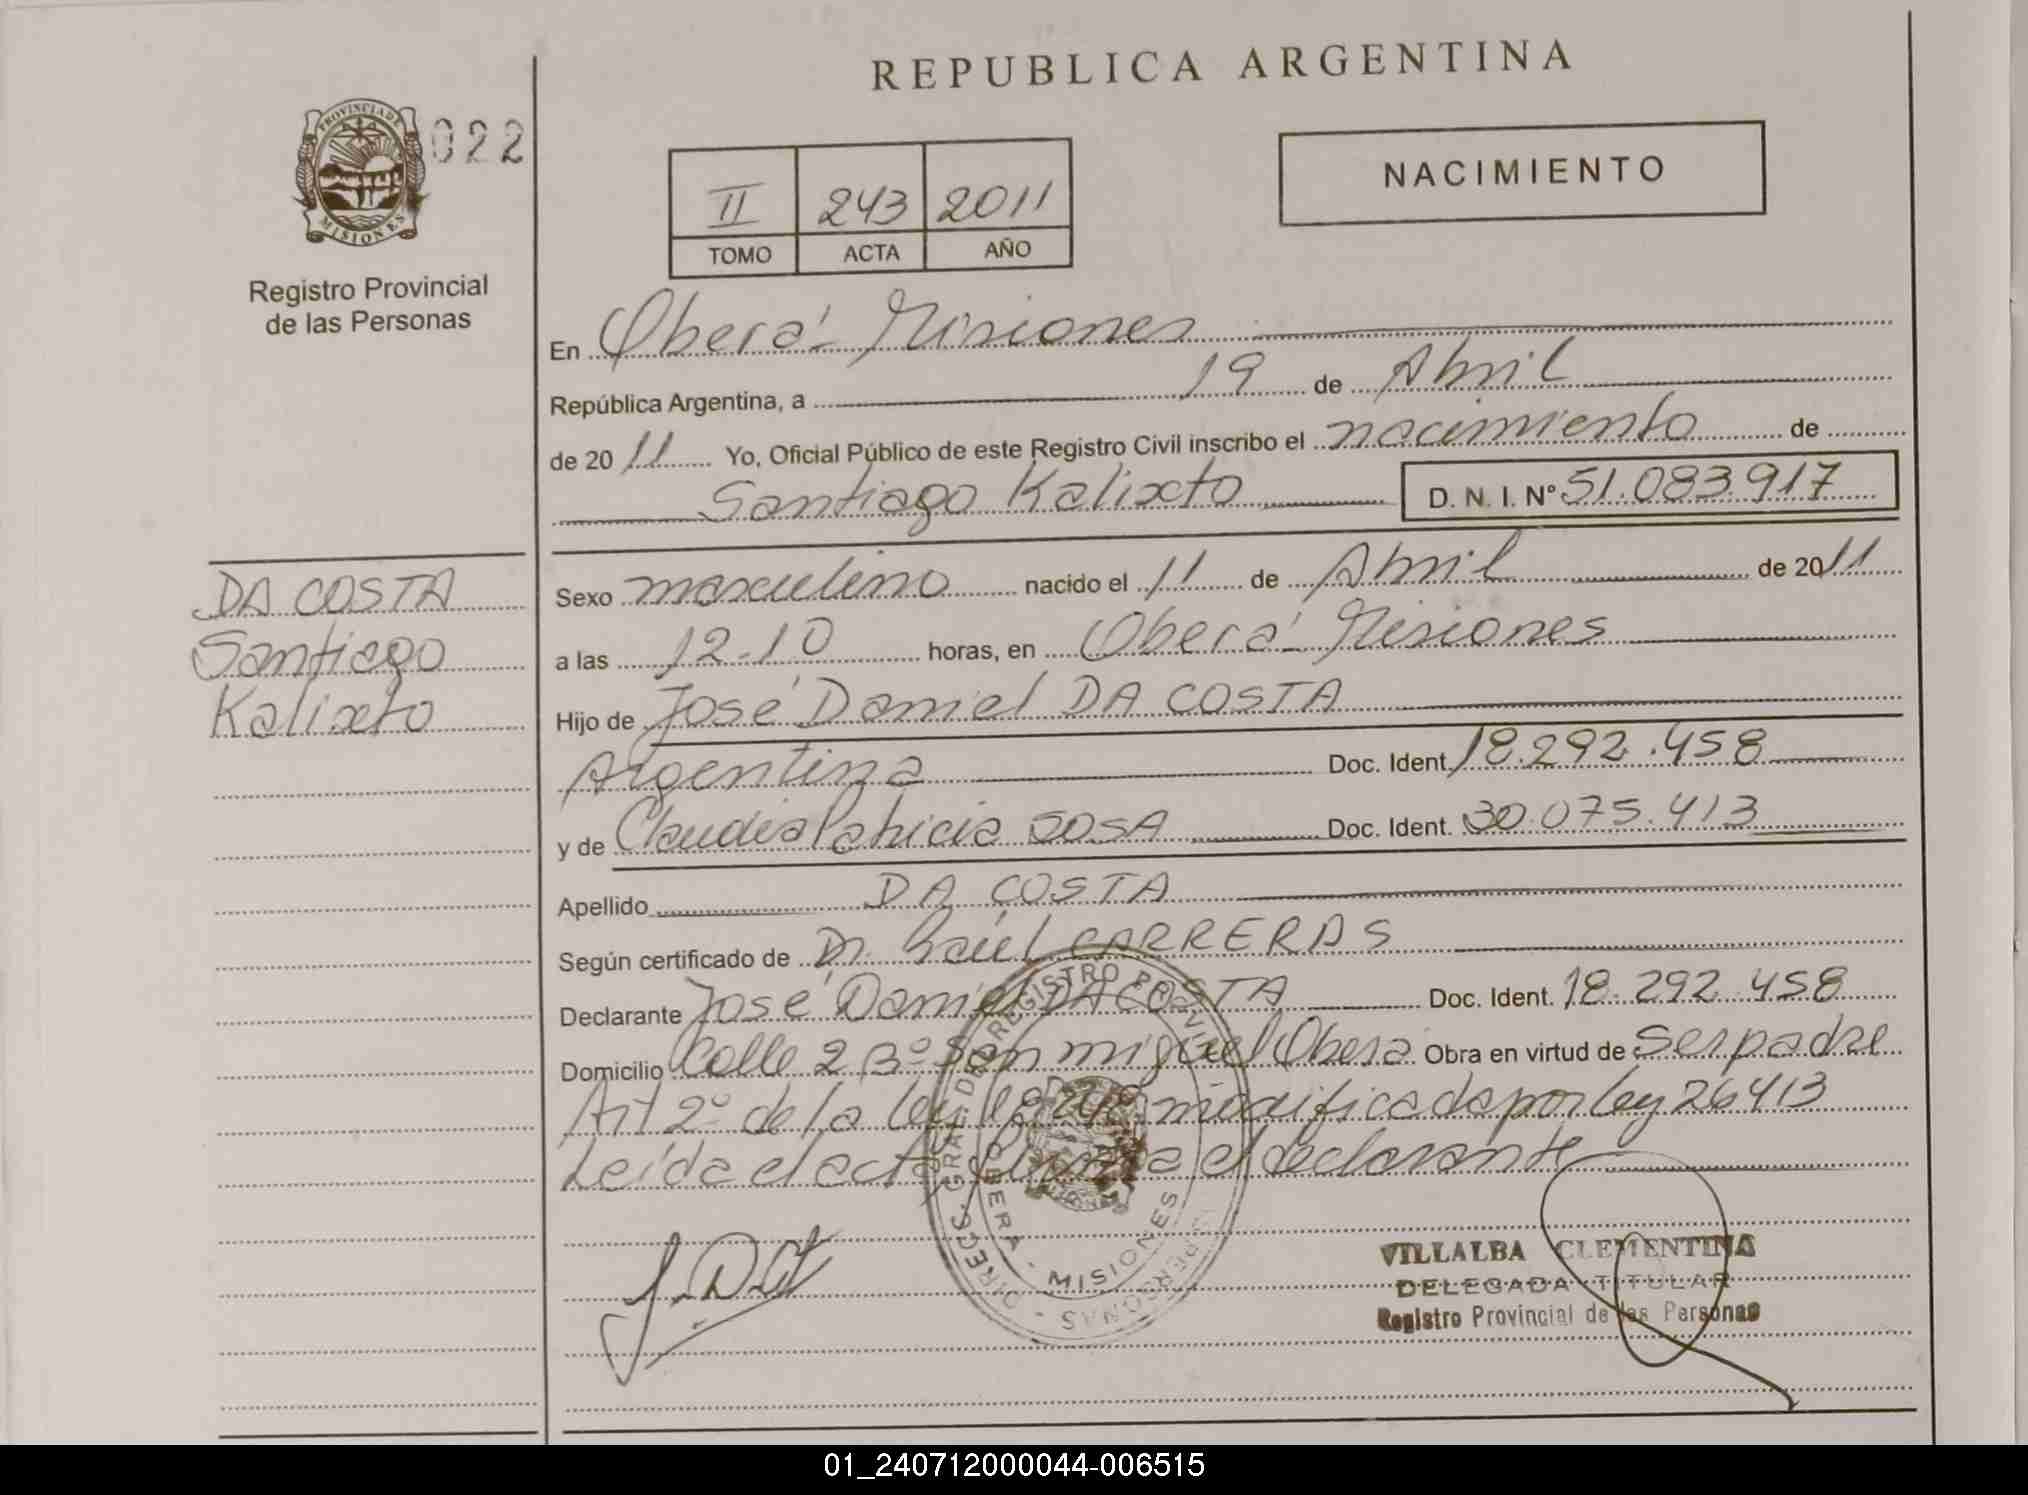 REPUBLICA ARGENTINA
PROVINCIA DE
MISIONES
022
Registro Provincial
de las Personas
II 243 2011
TOMO ACTA AÑO
NACIMIENTO
En Oberá - Misiones
República Argentina, a 19 de Abril
de 2011 Yo, Oficial Público de este Registro Civil inscribo el nacimiento de
Santiago Kalixto D. N. I. Nº 51.083.917
DA COSTA
Santiago
Kalixto
Sexo masculino nacido el 11 de Abril de 2011
a las 12-10 horas, en Oberá - Misiones
Hijo de José Daniel DA COSTA
Argentina Doc. Ident. 18.292.458
y de Claudia Patricia SOSA Doc. Ident. 30.075.413
Apellido DA COSTA
Según certificado de Dr. Raúl CARRERAS
Declarante José Daniel DA COSTA Doc. Ident. 18.292.458
Domicilio Calle 2 Bº San Miguel Oberá Obra en virtud de ser padre
Art 2º de la Ley modificada por Ley 26413
Leída el acta firma el declarante
DIRECC. GRAL. DE REGISTRO PROVINCIAL PERSONAS
OBERA - MISIONES
VILLALBA CLEMENTINA
DELEGADA TITULAR
Registro Provincial de las Personas
01_240712000044-006515